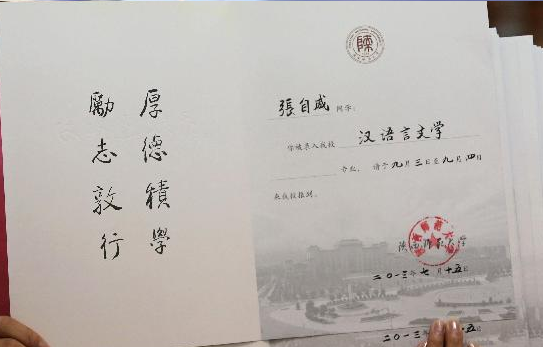 厚德積學
勵志敦行
張自成 同学:
你被录入我校 汉语言文学
专业，请于九月三日至九月四日
来我校报到。
陕西师范大学
二〇一三年七月十五日
二〇一三
十五日